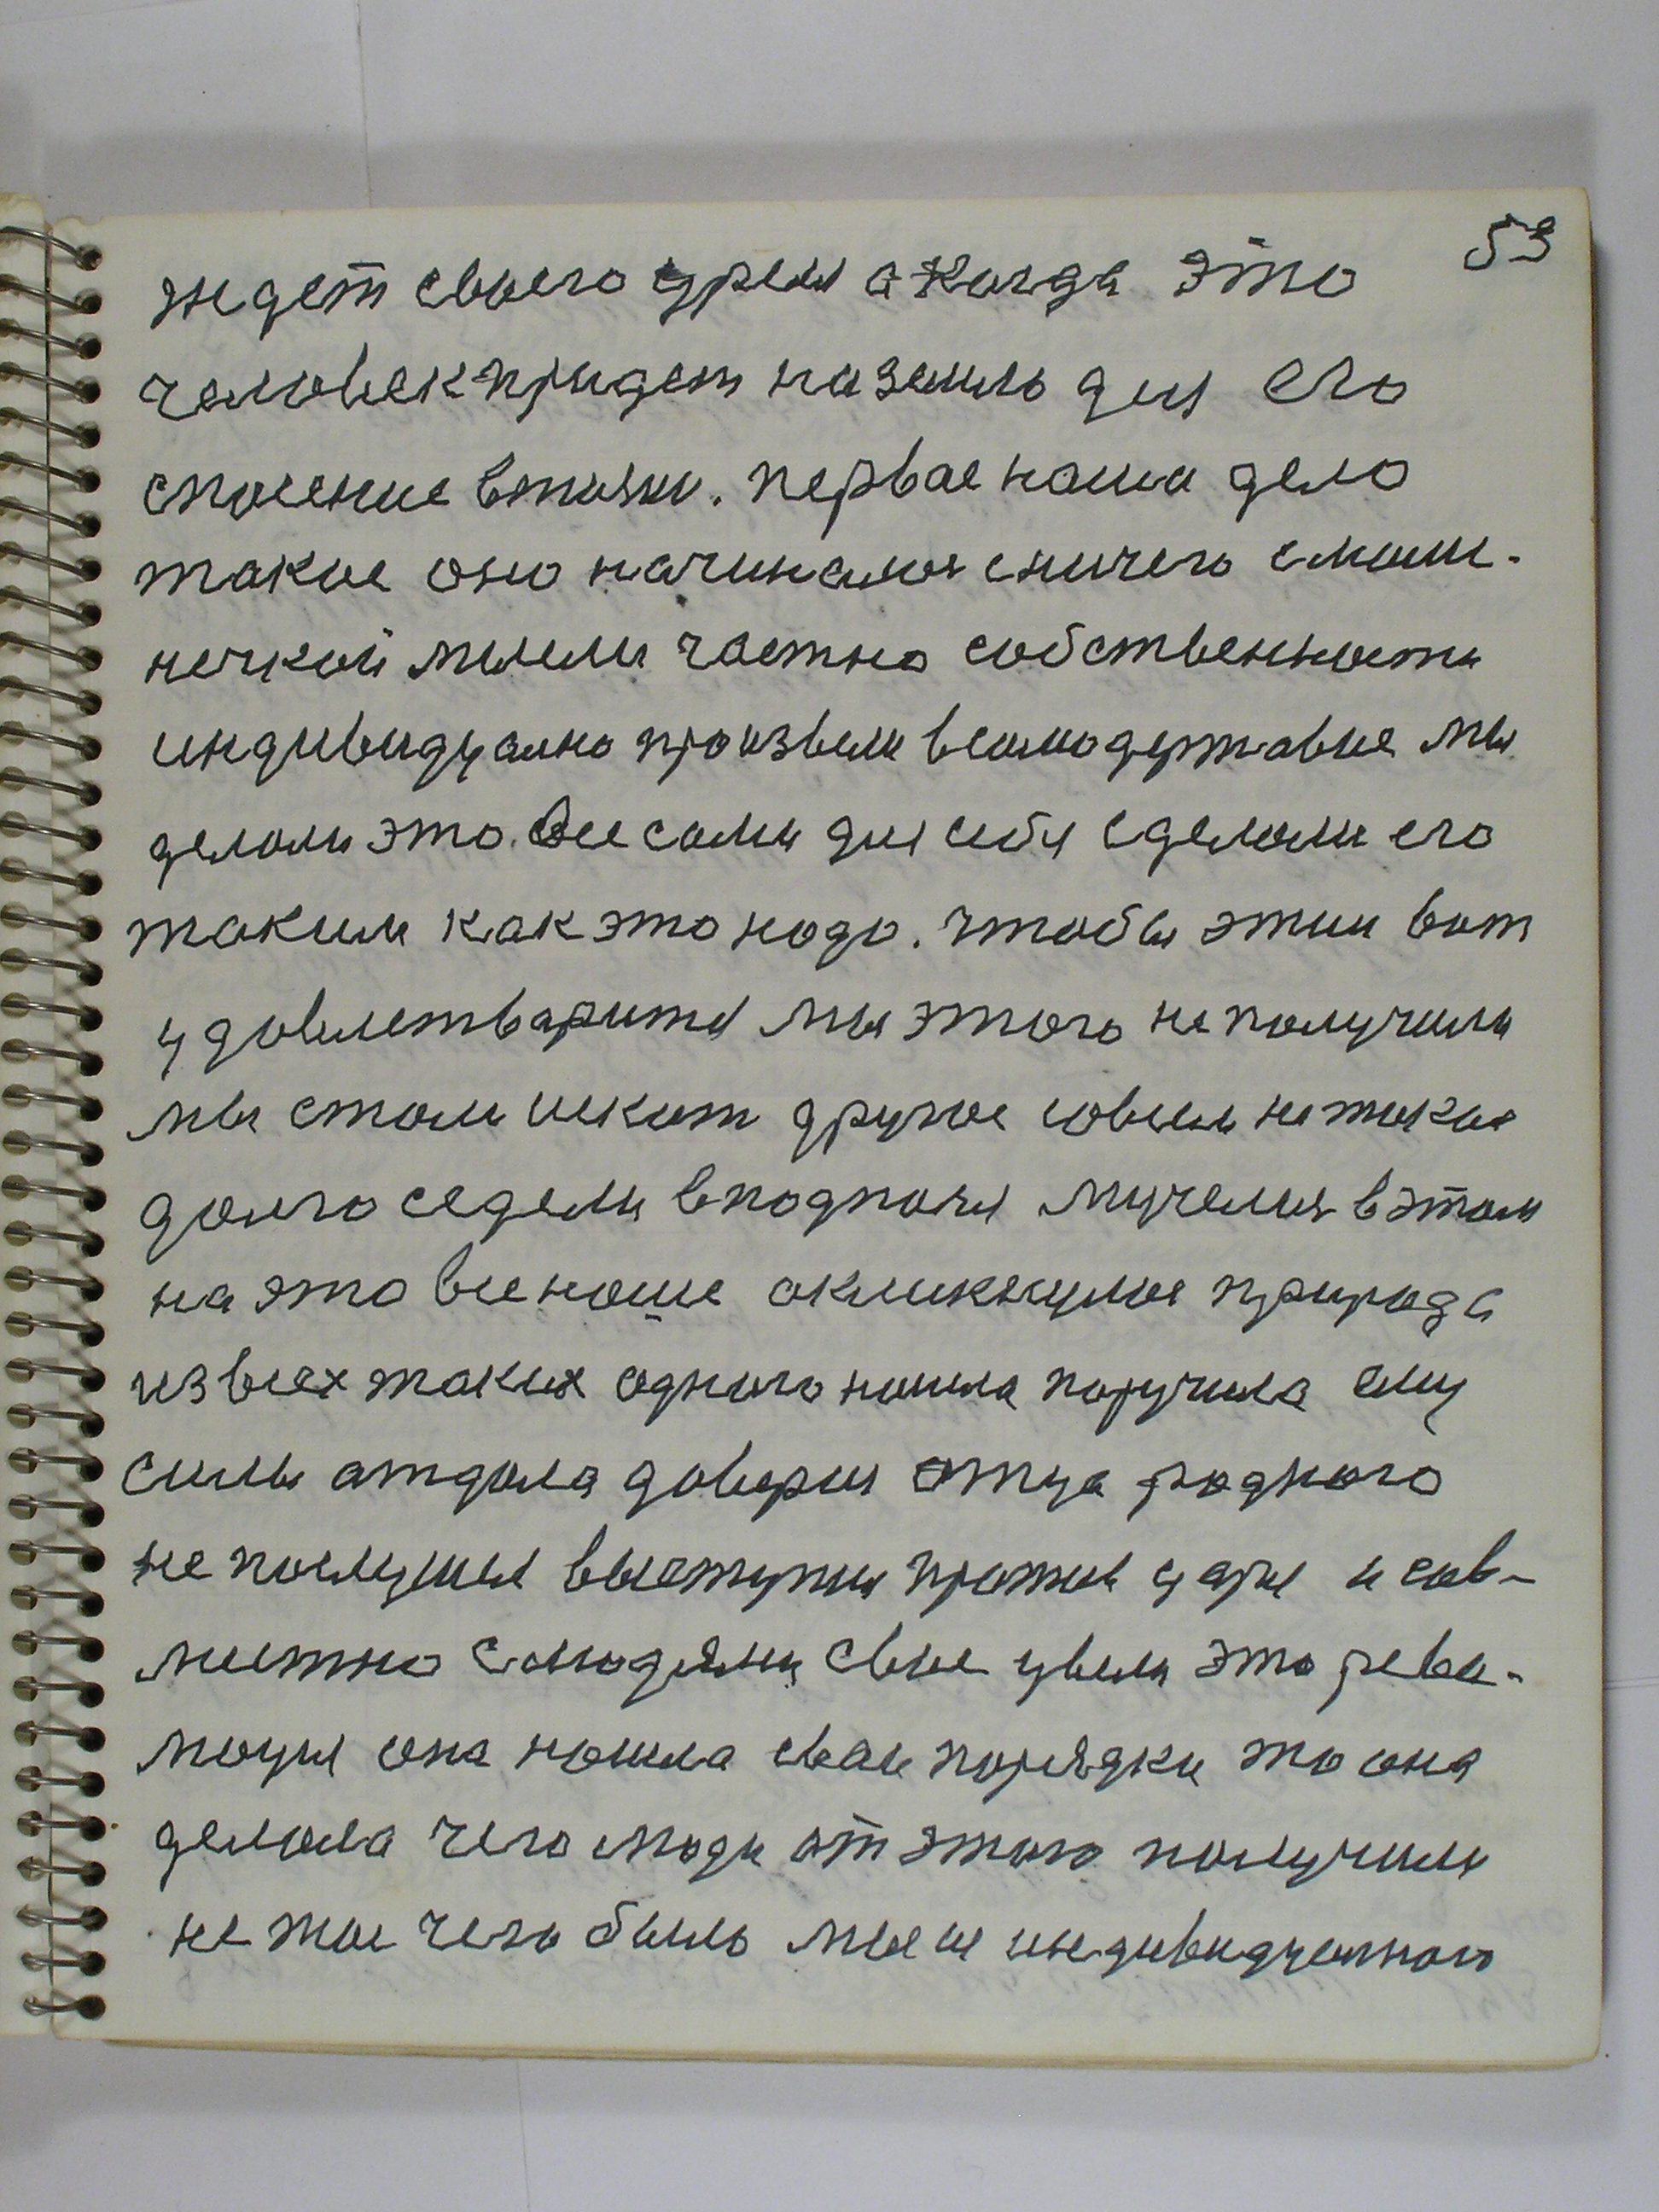 53
ждет своего время а когда это
человек придет на земль для его
спосение в тюями. первае наша дело
такое оно начиналося сничего с мали-
нечкой мысли частно собственности
индивидуално произвели всамодержавие мы
делали это. Все сами для себя сделали его
таким как это надо. чтобы этим вот
удовлетварится мы этого не получили
мы стали искат другое совсем не такое
долго седели вподполя мучелися в этом
на это все наше окликнулося природа
из всех таких одного нашла поручила ему
силы атдала доверия отца родного
не послушел выступил против царя и сов-
местно слюдями свое увели это рева-
люция она нашла сваи порядки то она
делала чего люди от этого получили
не тое чего было мысе индивидуалного